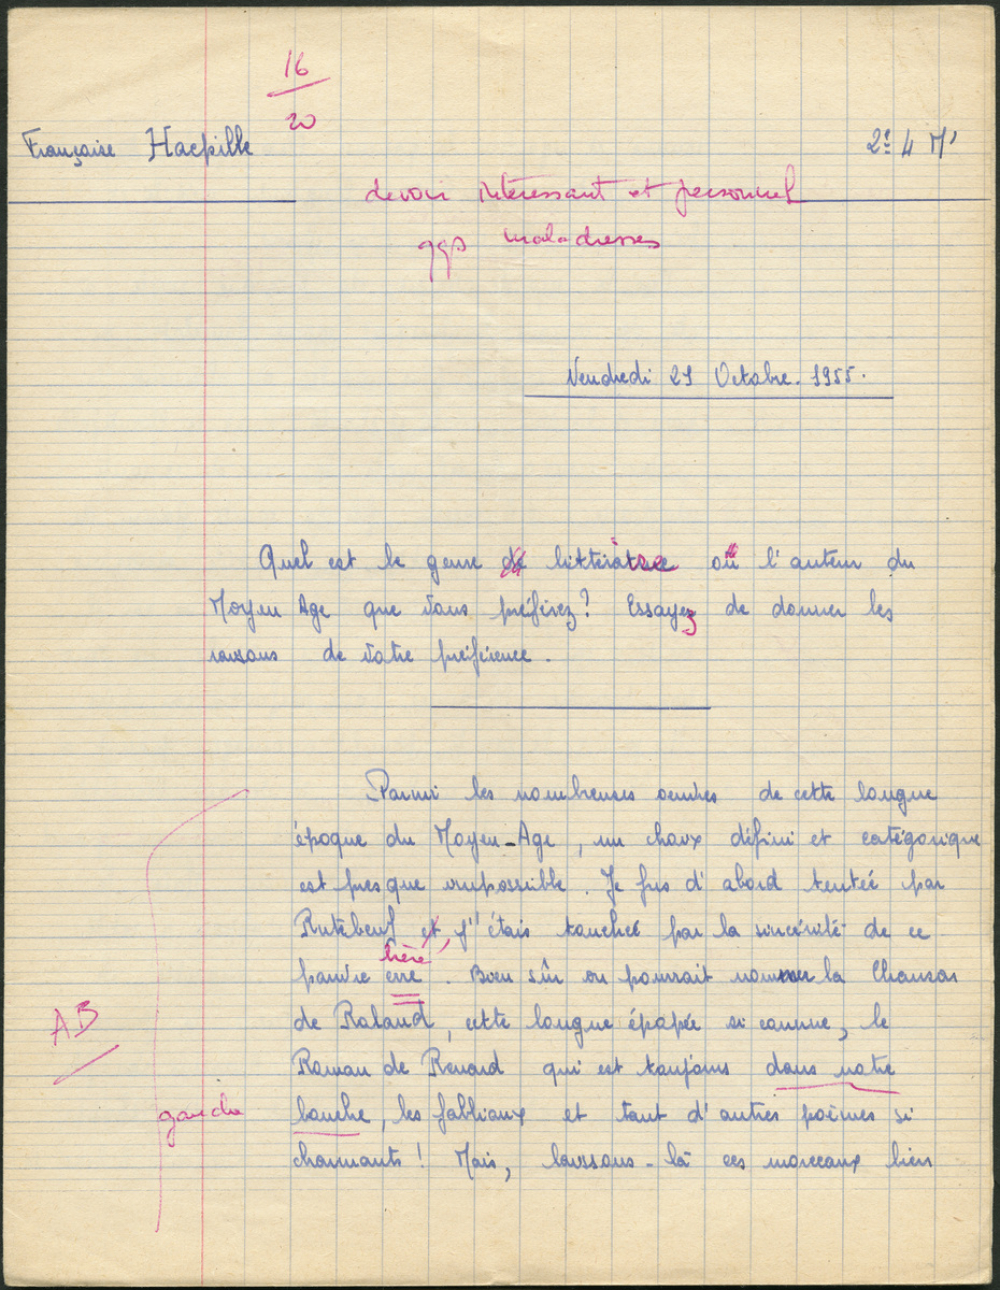 16
20
Françoise Haepille
2e 4 M'
devoir intéressant et personnel
qqs maladresses
Vendredi 21 Octobre. 1955.
Quel est le genre de littérature ou l'auteur du
Moyen Age que vous préférez? Essayez de donner les
raisons de votre préférence.
Parmi les nombreuses oeuvres de cette longue
époque du Moyen-Age, un choix défini et catégorique
est presque impossible. Je fus d'abord tentée par
Rutebeuf et, j'étais touchée par la sincérité de ce
hère
pauvre erre. Bien sûr on pourrait nommer la Chanson
AB
de Roland, cette longue épopée si connue, le
Roman de Renard qui est toujours dans notre
gauche
bouche, les fabliaux et tant d'autres poèmes si
charmants! Mais, laissons-là ces morceaux bien